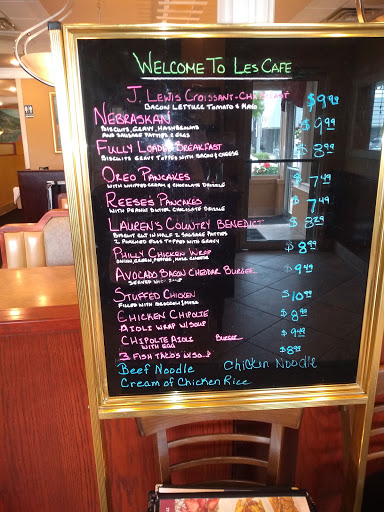 WELCOME TO LES CAFE
J. LEWIS CROISSANT-CHX BREAST $9.99
BACON LETTUCE TOMATO & MAYO
NEBRASKAN $9.99
BISCUITS, GRAVY, HASHBROWNS
AND SAUSAGE PATTIES 2 EGGS
FULLY LOADED BREAKFAST $8.99
BISCUITS GRAVY TOPPED WITH BACON & CHEESE
OREO PANCAKES $7.49
WITH WHIPPED CREAM & CHOCOLATE DRIZZLE
REESES PANCAKES $7.49
WITH PEANUT BUTTER CHOCOLATE DRIZZLE
LAUREN'S COUNTRY BENEDICT $8.29
BISCUIT CUT IN HALF 2 SAUSAGE PATTIES
2 POACHED EGGS TOPPED WITH GRAVY
PHILLY CHICKEN WRAP $8.99
ONION, GREEN, PEPPER, CHEESE
AVOCADO BACON CHEDDAR BURGER $9.49
SERVED WITH SOUP
STUFFED CHICKEN $10.99
FILLED WITH BROCCOLI &
CHICKEN CHIPOLTE $8.99
AIOLI WRAP W/SOUP
CHIPOLTE AIOLI BURGER $9.49
WITH EGG
3 FISH TACOS W/SOUP $8.99
Beef Noodle Chicken Noodle
Cream of Chicken Rice